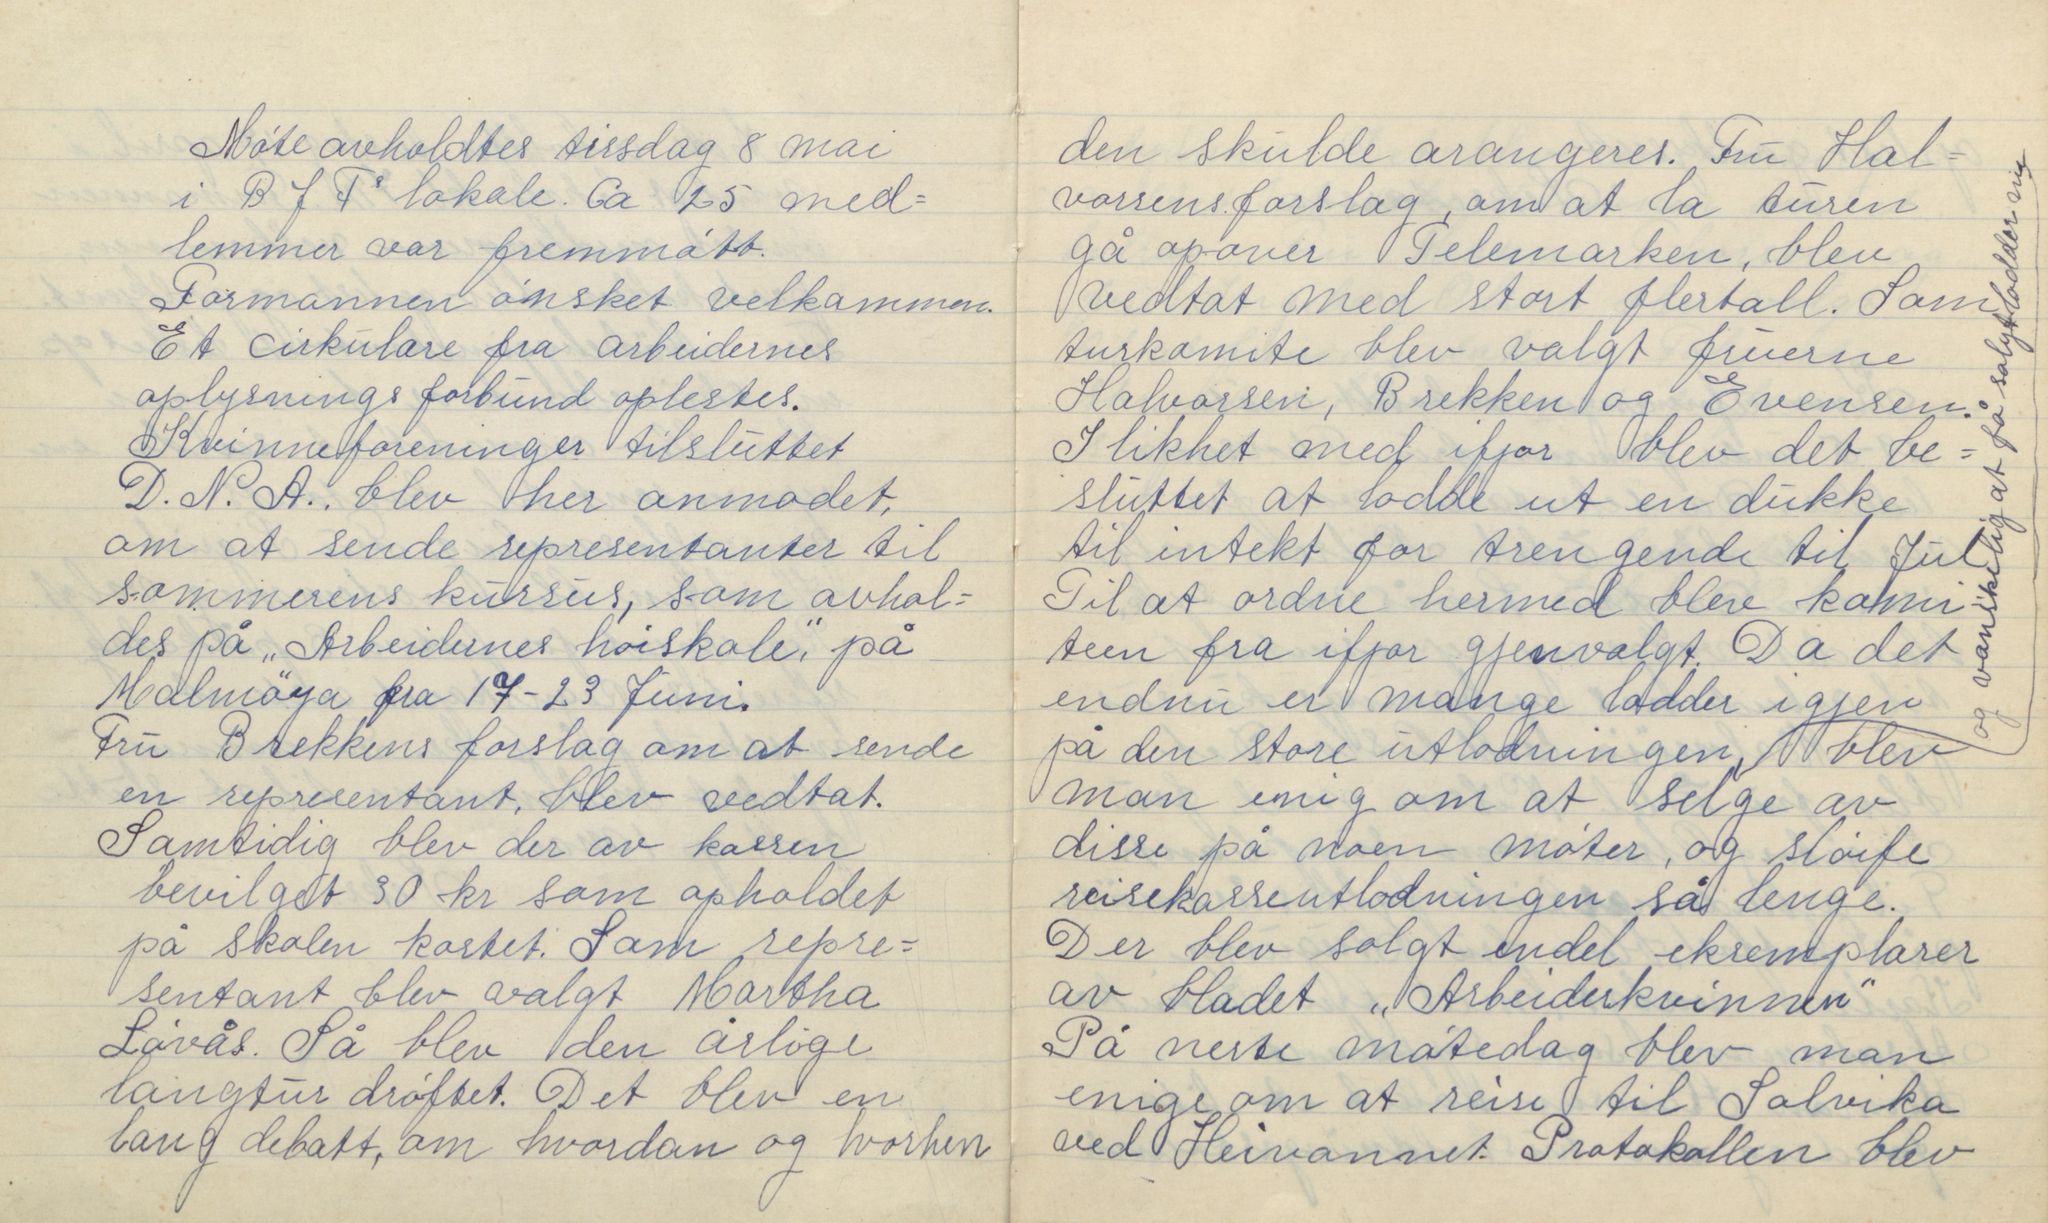 Møte avholdtes tirsdag 8 mai
i B J F's lokale. Ca 25 med=
lemmer var fremmøtt.
Formannen ønsket velkommen.
Et cirkulære fra arbeidernes
oplysnings forbund oplestes.
Kvinneforeninger tilsluttet
D. N. A. blev her anmodet,
om at sende representanter til
sommerens kursus, som avhol=
des på „Arbeidernes høiskole", på
Malmøya fra 17-23 Juni.
Fru Brekkens forslag om at sende
en representant, blev vedtat.
Samtidig blev der av kassen
bevilget 30 kr som opholdet
på skolen kostet. Som repre=
sentant blev valgt Martha
Løvås. Så blev den årlige
langtur drøftet. Det blev en
lang debatt, om hvordan og hvorhen
den skulde arangeres. Fru Hal=
vorsens forslag, om at la turen
gå opover Telemarken, blev
vedtat med stort flertall. Som
turkomite blev valgt fruerne
Halvorsen, Brekken og Evensen.
I likhet med ifjor blev det be=
sluttet at lodde ut en dukke
til intekt for trengende til Jul
Til at ordne hermed blev komi-
teen fra ifjor gjenvalgt. Da det
endnu er mange lodder igjen
på den store utlodningen, blev
og vanskelig at få solgt lodder nu
man enig om at selge av
disse på noen møter, og sløife
reisekasseutlodningen så lenge.
Der blev solgt endel eksemplarer
av bladet „Arbeiderkvinnen"
På neste møtedag blev man
enige om at reise til Solvika
ved Heivannet. Protokollen blev